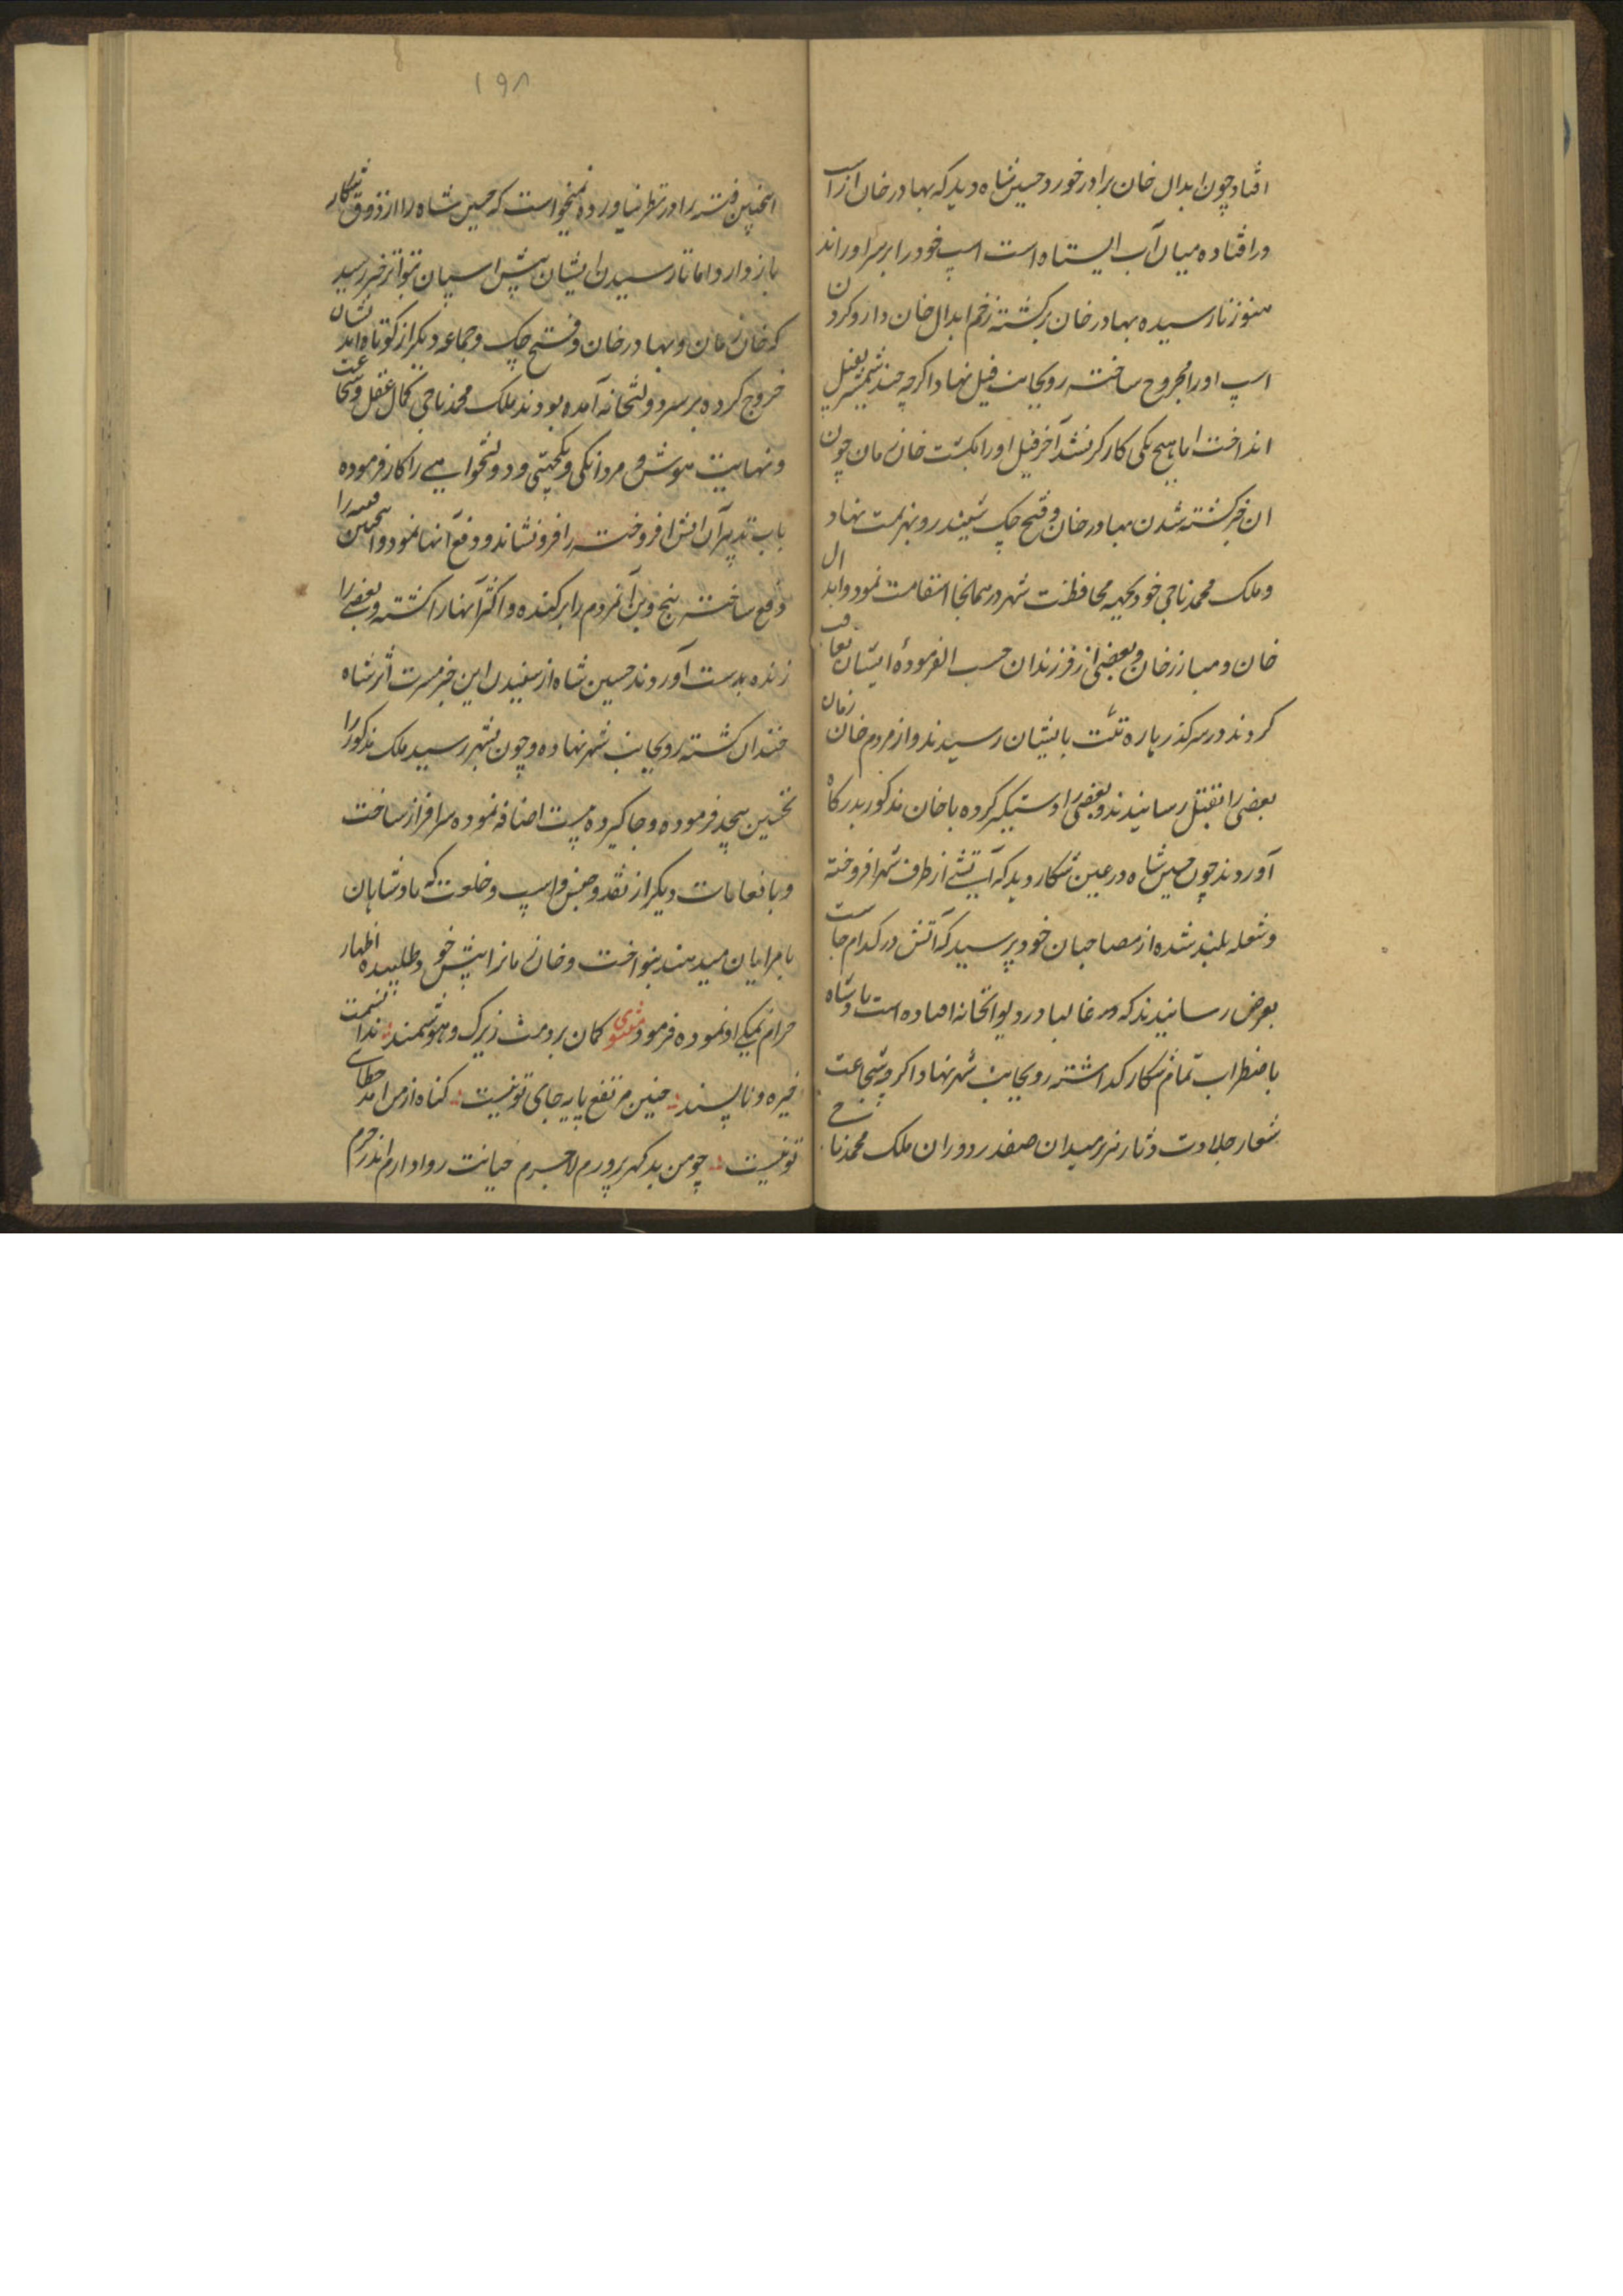 افتاد چون ابدال خان برادر خورد حسین شاه دید که بهادر خان از اسپ
درافتاده میان آب ایستاه است اسپ خود را بر سر او راند
هنوز نارسیده بهادر خان برگشته زخم ابدال خان دار و کردن
اسپ او را مجروح ساخته رویجانب فیل نهاد اگرچه چند شمشیر بفیل
انداخت اما هیچ یکی کارگر نشد آخر فیل او را بکشت خان زمان چون
ان خبر کشته شدن بهادر خان و فتح چک شنید رو بهزیمت نهاد
و ملک محمد ناجی خود بجهة محافظت شهر در همانجا استقامت نمود و ابدال
خان و مبارز خان و بعضی از فرزندان حسب الفرمودهٔ ایشان تعاقب
کردند در سر گذر باره تلت بایشان رسیدند و از مردم خان زمان
بعضی را بقتل رسانیدند و بعضی را دستیگیر کرده با خان مذکور بدرگاه
آوردند چون حسین شاه در عین شکار دید که آتشی از طرف شهر افروخته
و شعله بلند شده از مصاحبان خود پرسید که آتش در کدام جاست
بعرض رسانیدند که غالبا در دیوانخانه افتاده است پادشاه
باضطراب تمام شکار گذاشته رویجانب شهر نهاد اگرچه شجاعت
شعار جلادت دثار نربر میدان صفدر دوران ملک محمد ناجی
۱۹۸
اینچنین فتنه را در نظر نیاورده نمیخواست که حسین شاه را از ذوق شکار
باز دارد اما تا رسیدن ایشان پیش اسیان بتواتر خبر رسید
که خان زمان و بهادر خان و فتح چک و جماعه دیگر از کوتاه اندیشان
خروج کرده بر سر دولتخانه آمده بودند ملک محمد ناجی کمال عقل و شجاعت
و نهایت هوش و مردانگی و یکجهتی و دولتخواهی را کار فرموده
باب تدبیر آن اتش افروخته را فرو نشاند و دفع آنها نمود و اینچنین فتنه را
دفع ساخته بیخ و بن آنمردم را برکنده و اکثر آنها را کشته و بعضی را
زنده بدست آوردند حسین شاه از شنیدن این خبر مسرت اثر شاه
خندان گشته رویجانب شهر نهاده و چون بشهر رسید ملک مذکور را
تحسین بیحد فرموده و جاگیر ده بیست اضافه نموده سرافراز ساخت
و بانعامات دیگر از نقد و جنس و اسپ و خلعت که پادشاهان
بامرایان میدهند بنواخت و خان زمانرا پیش خود طلبیده اظهار
حرام نمکی او نموده فرمود مثنوی گمان بردمت زیرک و هوشمند ندانستمت
خیره و ناپسند چنین مرتفع پایه جای تو نیست گناه از من امد خطای
تو نیست چو من بدگهر پرورم لاجرم خیانت روا دارم اندر حرم